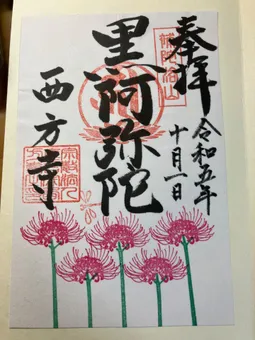 奉拝
補陀洛山
令和五年
十月一日
黒阿弥陀
西方寺